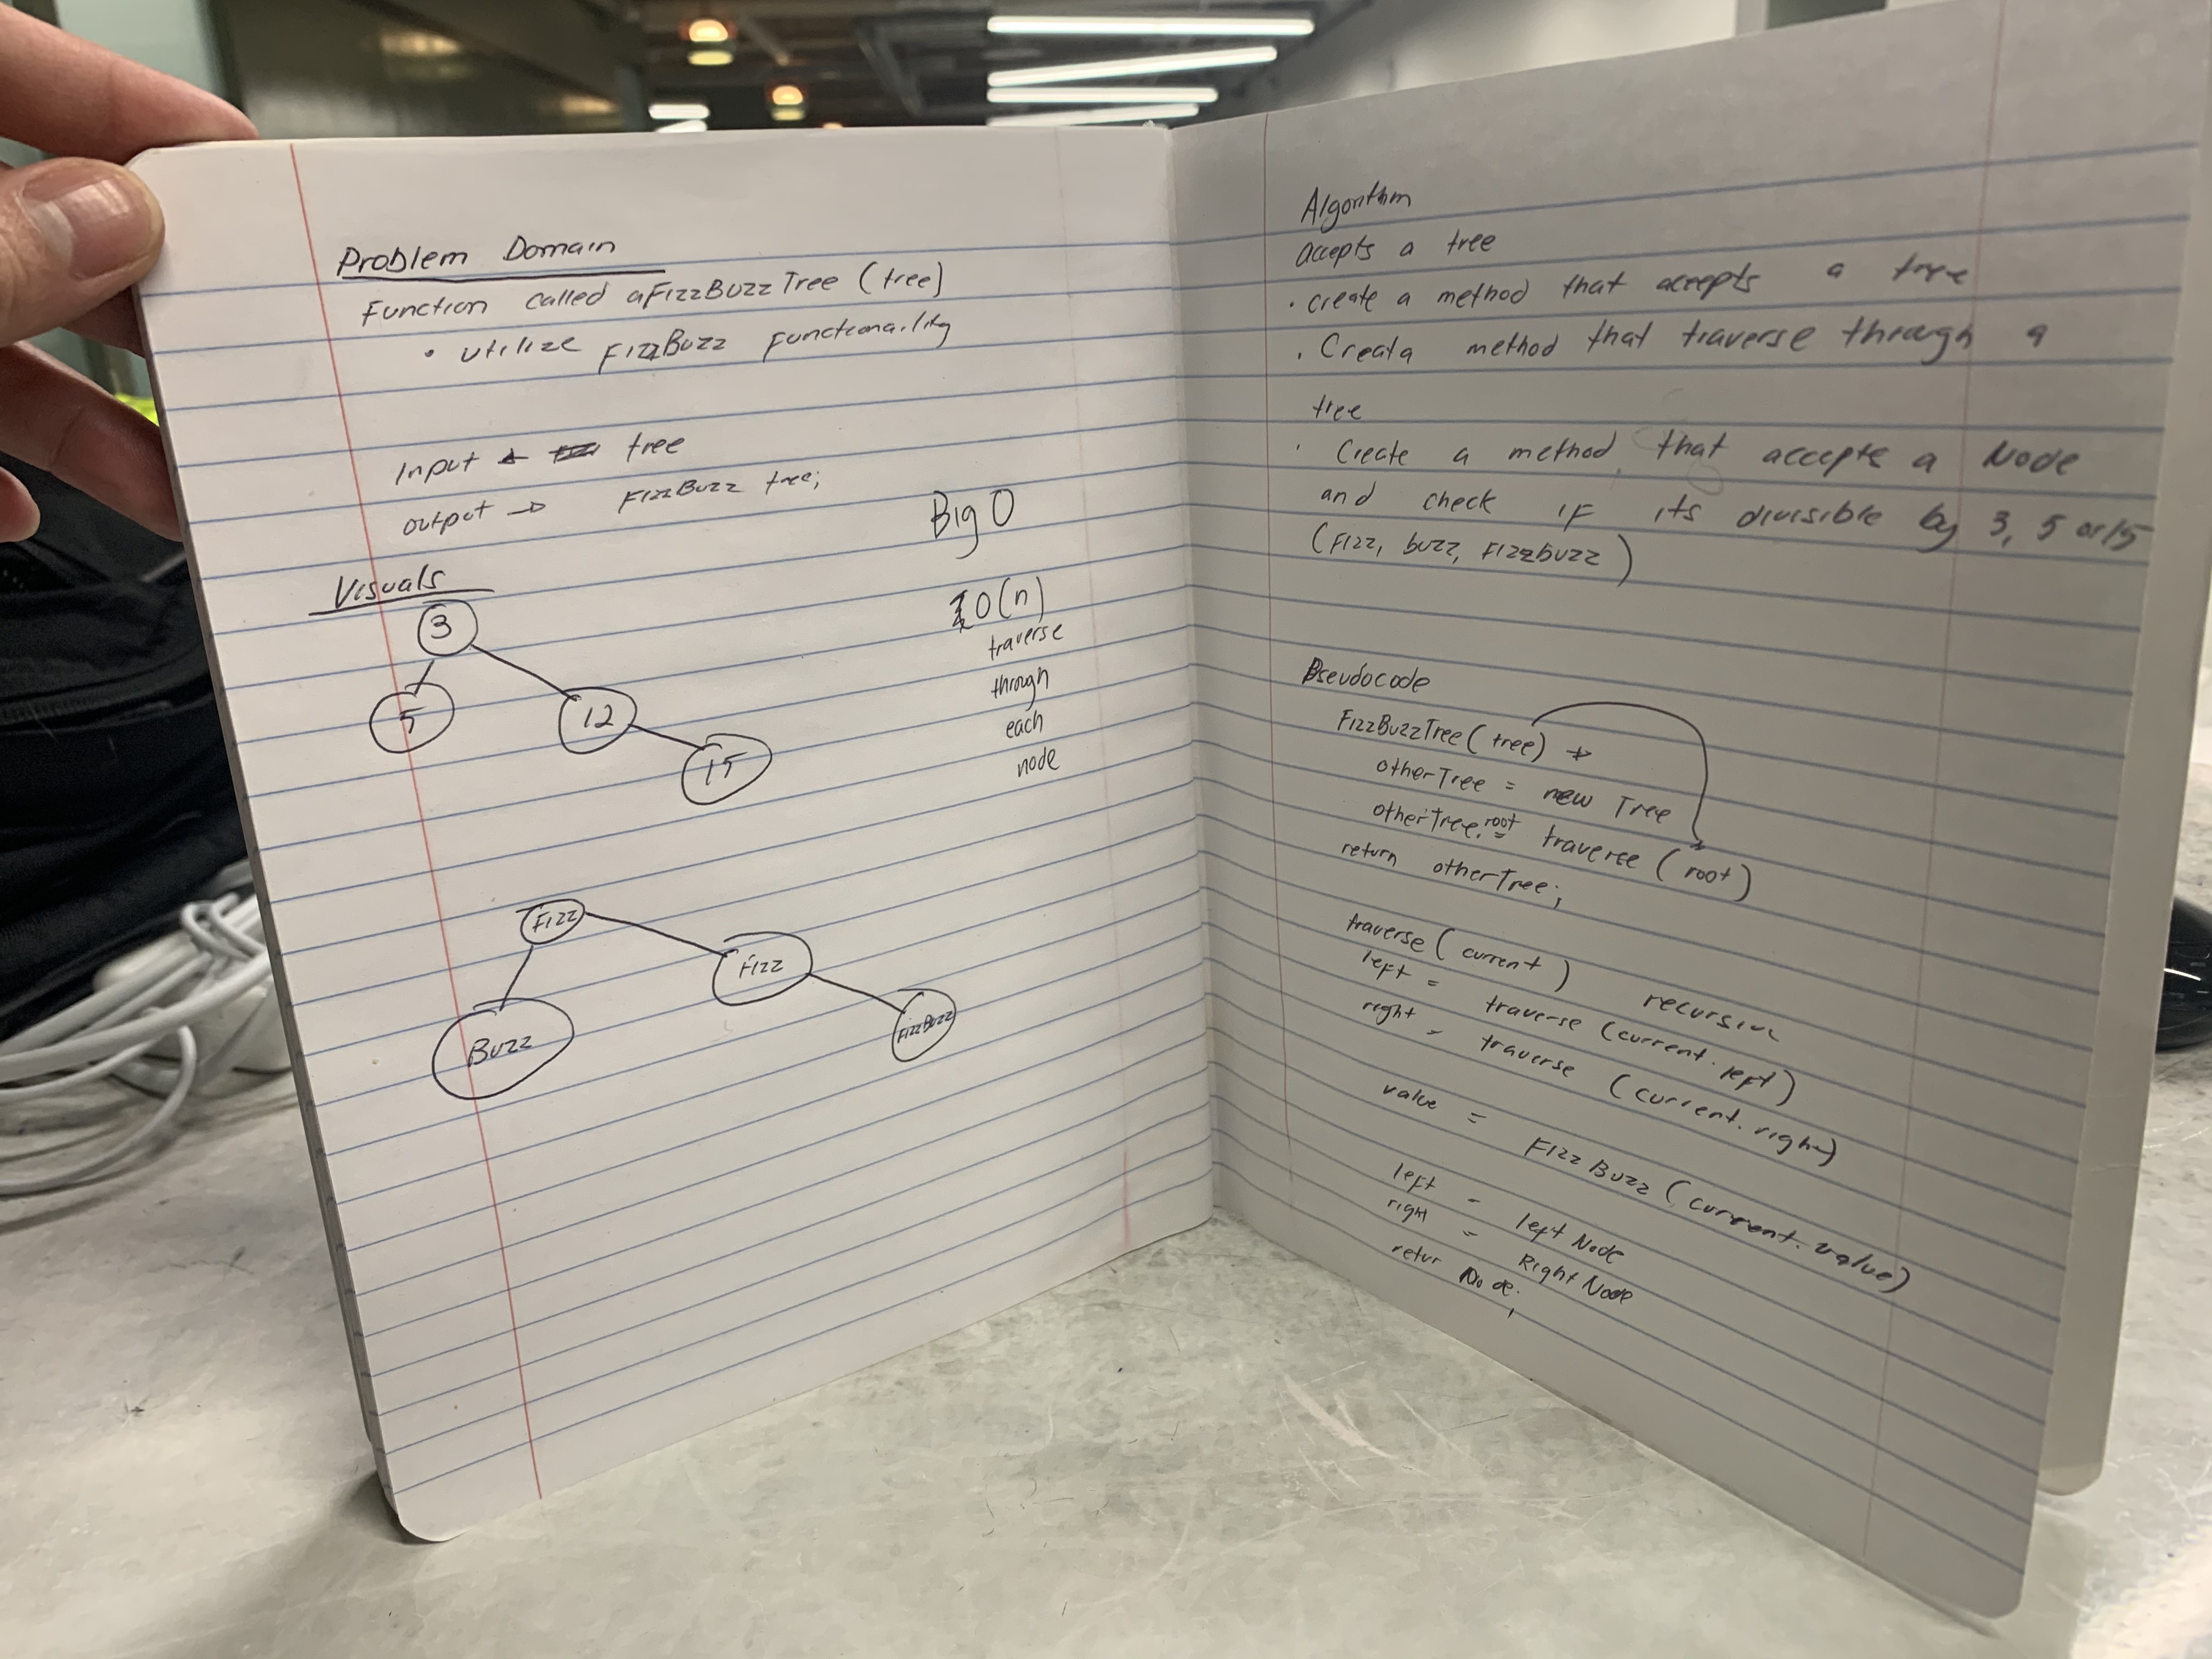 Problem Domain
Function called aFizzBuzzTree (tree)
• utilize FizzBuzz functionality
Input → tree
output → FizzBuzz tree;
Big O
O(n)
traverse
through
each
node
Visuals
3
5
12
15
Fizz
Fizz
Buzz
FizzBuzz
Algorithm
accepts a tree
• create a method that accepts a tree
• Creata method that traverse through a
tree
• Create a method that accepts a Node
and check if its divisible by 3, 5 or 15
(Fizz, buzz, Fizzbuzz)
Pseudocode
FizzBuzzTree (tree) →
otherTree = new Tree
otherTree.root = traverse (root)
return otherTree;
traverse (current) recursive
left = traverse (current.left)
right = traverse (current.right)
value = FizzBuzz (current.value)
left = left Node
right = Right Node
retur Node;